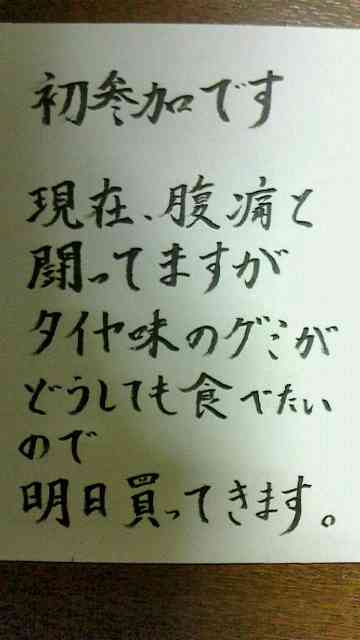 初参加です
現在、腹痛と
闘ってますが
タイヤ味のグミが
どうしても食べたい
ので
明日買ってきます。